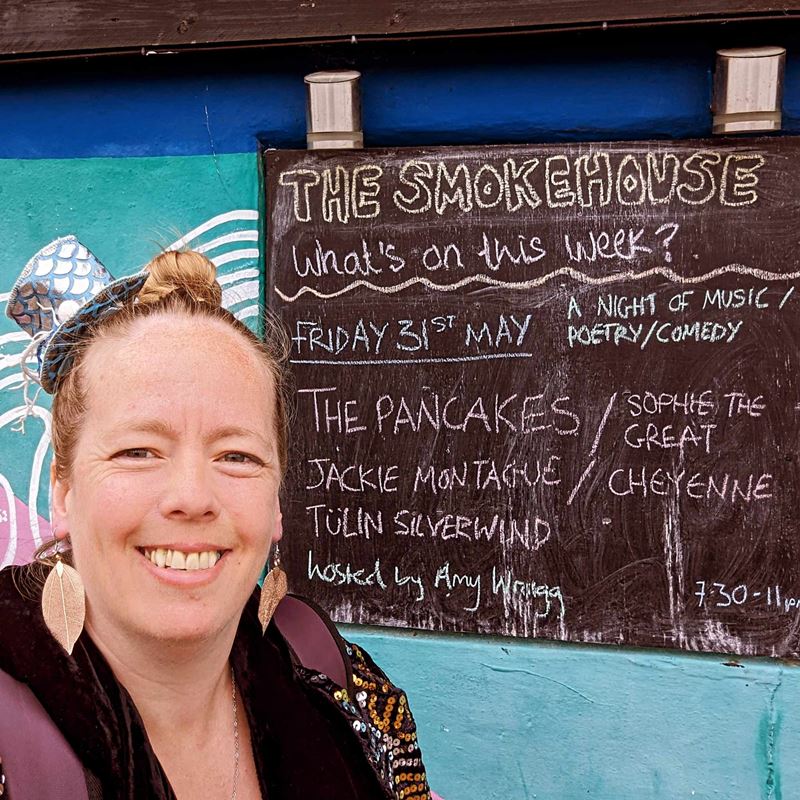 THE SMOKEHOUSE
What's on this week?
FRIDAY 31ST MAY
A NIGHT OF MUSIC /
POETRY/COMEDY
THE PANCAKES / SOPHIE THE
GREAT
JACKIE MONTAGUE / CHEYENNE
TÜLIN SILVERWIND
hosted by Amy Wragg
7·30-11pm